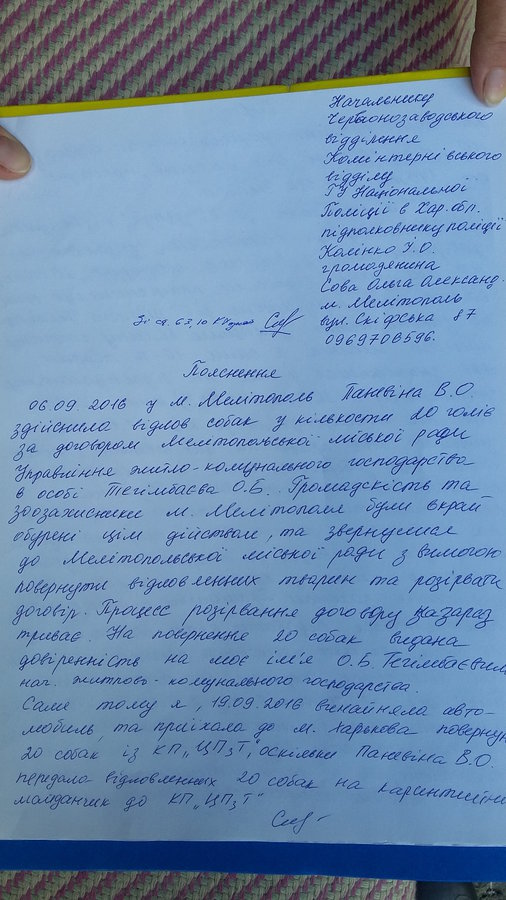 Начальнику
Червонозаводського
відділення
Комінтернівського
відділу
ГУ Національної
Поліції в Хар. обл.
підполковнику поліції
Колінко І.О.
громодянина
Сова Ольга Олександ.
м. Мелітополь
вул. Скіфська 87
0969708596.
Зі ст. 63, 10 КУ
Пояснення
06.09.2016 у м. Мелітополь Паневіна В.О.
здійснила відлов собак у кількости 20 голів
за договором Мелітопольської міської ради
Управління житло-комунального господарства
в особі Тегімбаєва О.Б.. Громадскість та
зоозахисники м. Мелітополя були вкрай
обурені цім дійством, та звернулися
до Мелітопольської міської ради з вимогою
повернути відловленних тварин та розірвати
договір. Процесс розірвання договору назараз
триває. На повернення 20 собак видана
довіренність на моє ім'я О.Б. Тегімбаєвим
нач. житлово-комунального господарства.
Саме тому я, 19.09.2016 винайняла авто-
мобиль, та приїхала до м. Харькова повернути
20 собак із КП „ЦПзТ", оскільки Паневіна В.О.
передала відловленних 20 собак на карантийни
майданчик до КП „ЦПзТ"